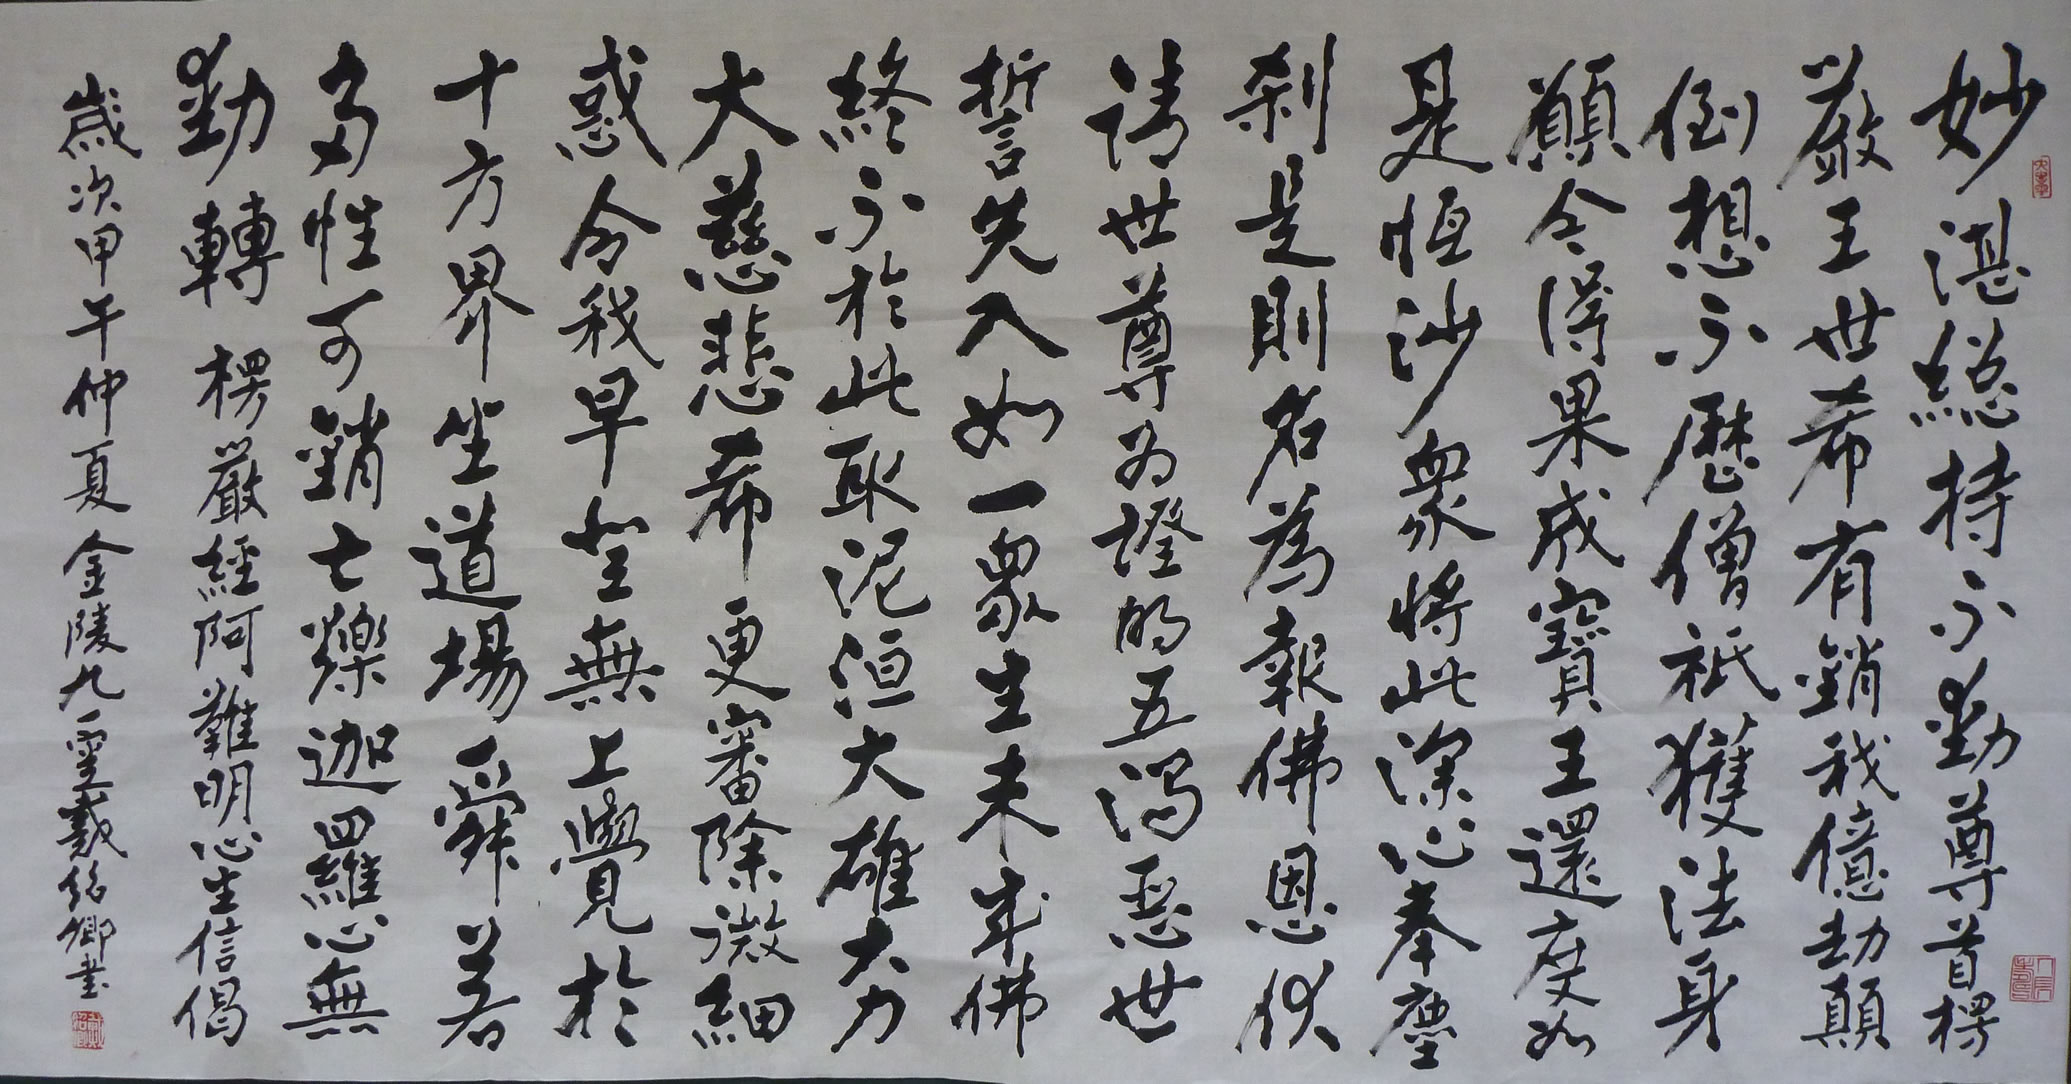 妙湛總持不動尊首楞
嚴王世希有銷我億劫顛
倒想不歷僧祇獲法身
願今得果成寶王還度如
是恒沙眾將此深心奉塵
剎是則名為報佛恩伏
請世尊為證明五濁惡世
誓先入如一眾生未成佛
終不於此取泥洹大雄大力
大慈悲希更審除微細
惑令我早登無上覺於
十方界坐道場舜若
多性可銷亡爍迦囉心無
動轉 楞嚴經阿難明心生信偈
歲次甲午仲夏金陵九靈戴紹卿書